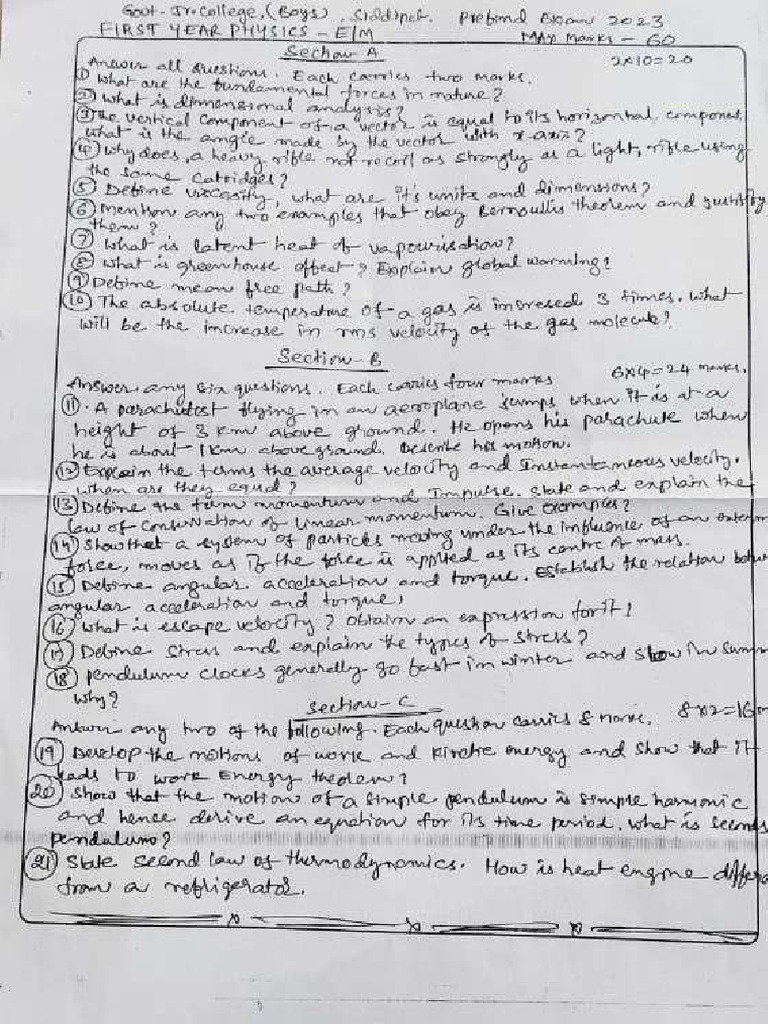 Govt. Jr. College, (Boys), Siddipet. Prefinal Exam 2023
FIRST YEAR PHYSICS - E/M Max Marks - 60
Section A
Answer all questions. Each carries two marks. 2x10=20
① What are the fundamental forces in nature?
② What is dimensional analysis?
③ The vertical component of a vector is equal to its horizontal component,
what is the angle made by the vector with x-axis?
④ Why does a heavy rifle not recoil as strongly as a light rifle using
the same catridges?
⑤ Define viscosity, what are it's units and dimensions?
⑥ Mention any two examples that obey Bernoullis theorem and justify
them?
⑦ What is latent heat of vapourisation?
⑧ What is greenhouse effect? Explain global warming?
⑨ Define mean free path?
⑩ The absolute temperature of a gas is incresed 3 times. What
will be the increase in rms velocity of the gas molecule?
Section-B
Answer any six questions. Each carries four marks 6x4=24 marks.
⑪ A parachutist flying in an aeroplane jumps when it is at a
height of 3 km above ground. He opens his parachute when
he is about 1km above ground. Describe his motion.
⑫ Explain the terms the average velocity and Instantaneous velocity.
When are they equal?
⑬ Define the term momentum and Impulse. State and explain the
law of conservation of linear momentum. Give examples?
⑭ Show that a system of particles moving under the influence of an extern
force, moves as if the force is applied as its centre of mass.
⑮ Define angular acceleration and torque. Establish the relation betwe
angular acceleration and torque,
⑯ What is escape velocity? Obtain an expression for it?
⑰ Define stress and explain the types of stress?
⑱ pendulum clocks generally go fast in winter and slow in summ
Why?
Section-C
Answer any two of the following. Each question carries 8 marks. 8x2=16m
⑲ Develop the notions of work and kinetic energy and show that it
leads to work Energy theorem?
⑳ Show that the motion of a simple pendulum is simple harmonic
and hence derive an equation for its time period. What is seconds
pendulum?
㉑ State second law of thermodynamics. How is heat engine differe
from a refrigerator.